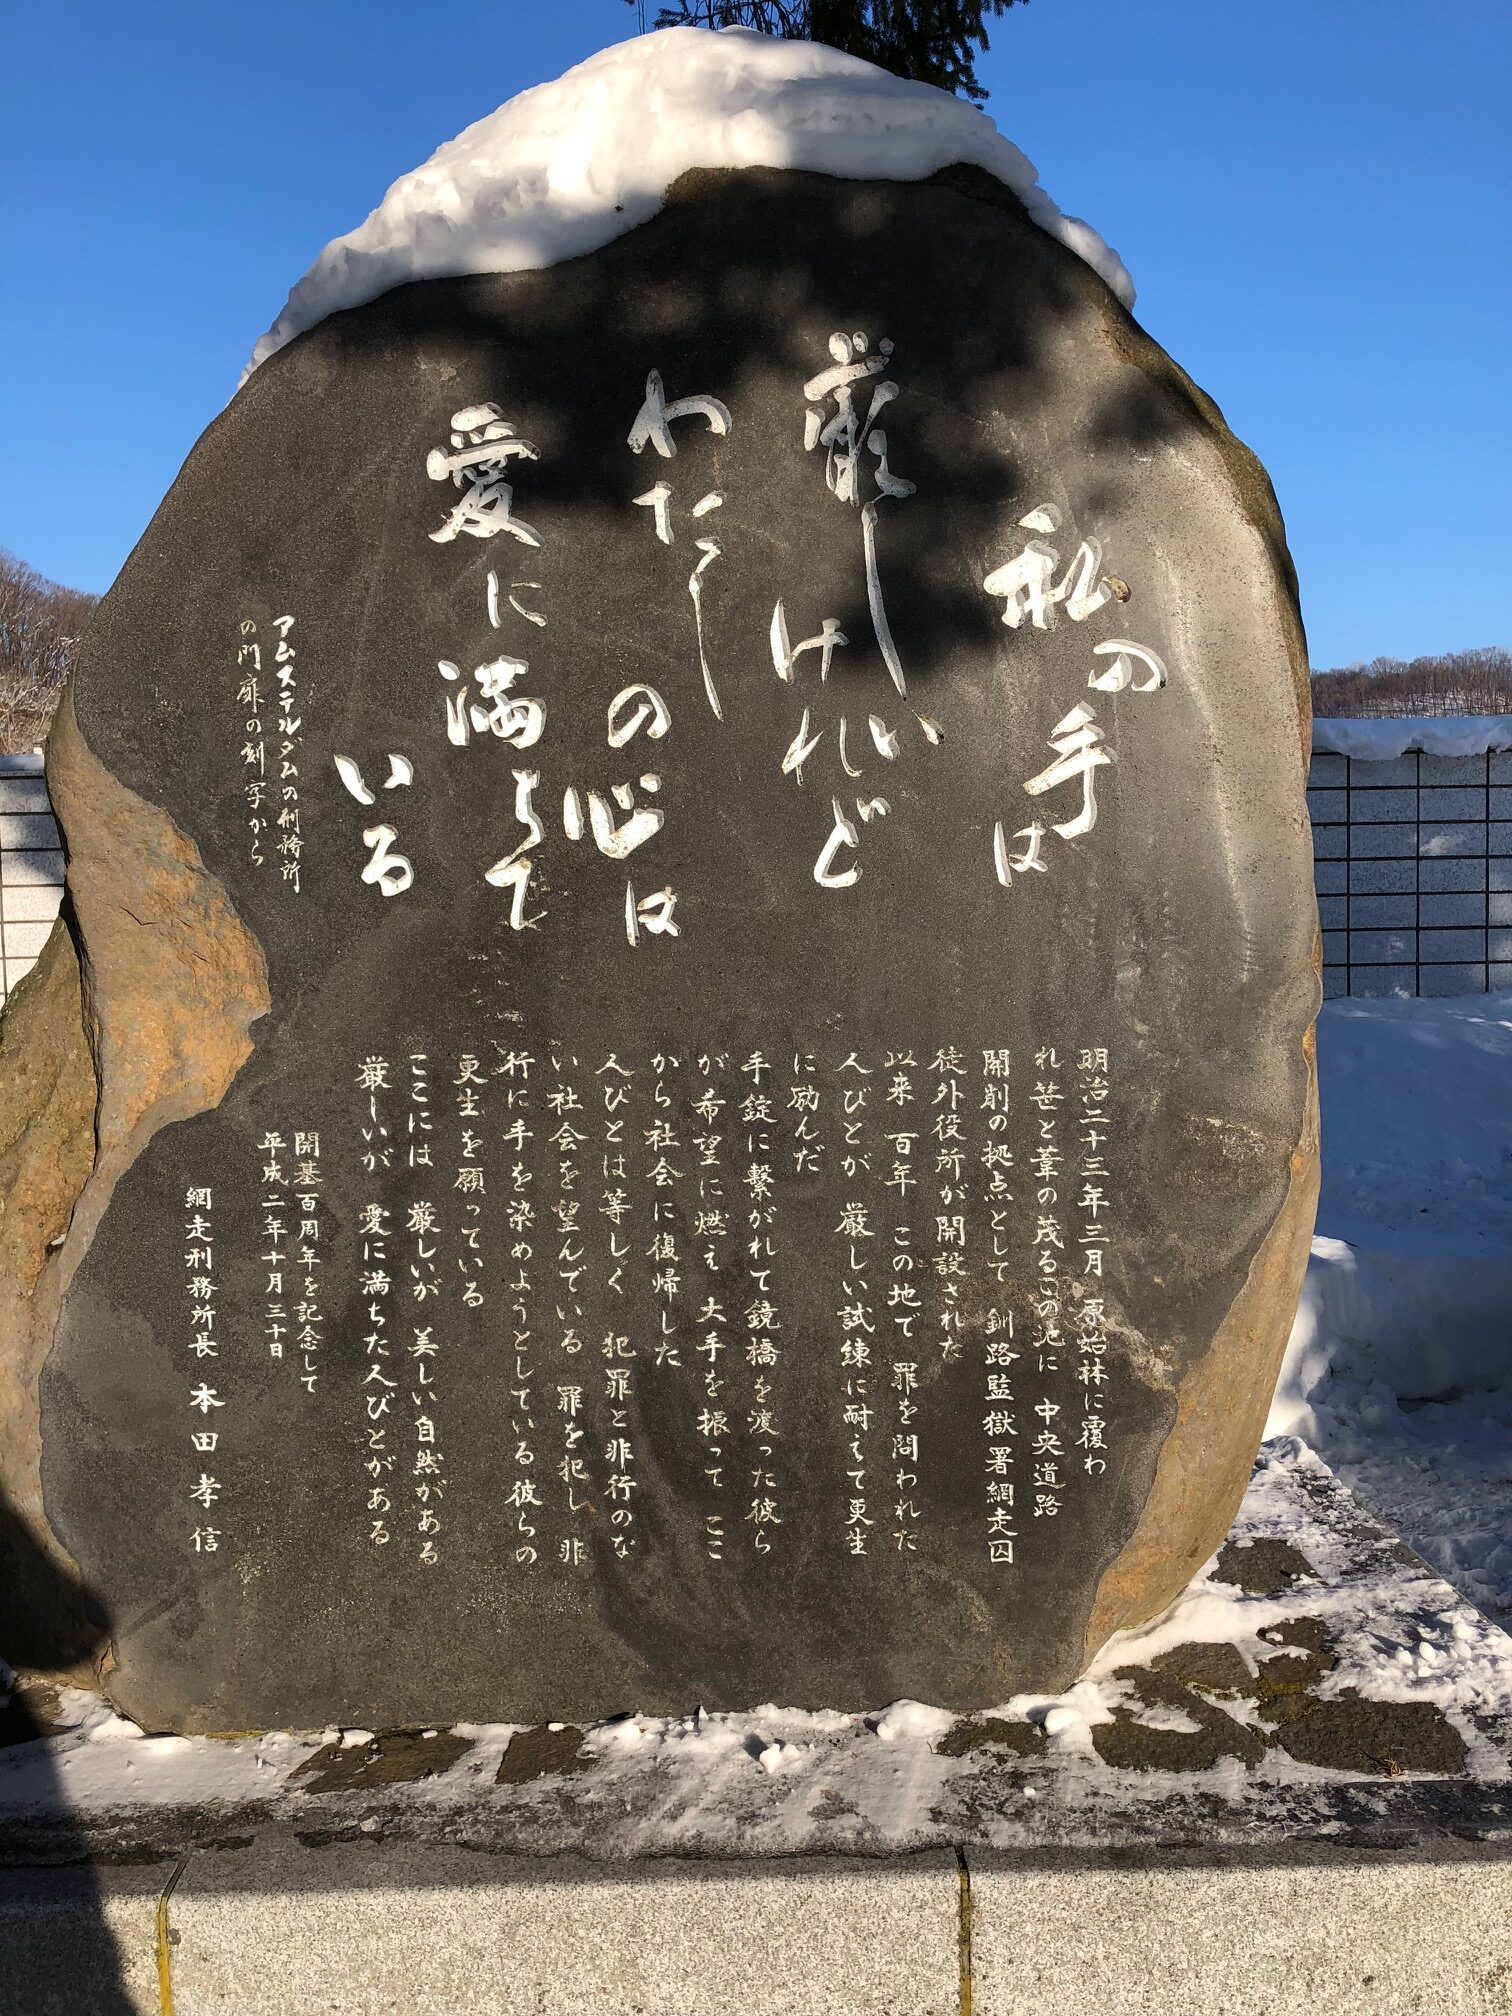 私の手は
厳しいけれど
わたしの心は
愛に満ちて
いる
アムステルダムの刑務所
の門扉の刻字から
明治二十三年三月 原始林に覆わ
れ笹と葦の茂るこの地に 中央道路
開削の拠点として 釧路監獄署網走囚
徒外役所が開設された
以来 百年 この地で 罪を問われた
人びとが 厳しい試練に耐えて更生
に励んだ
手錠に繋がれて鏡橋を渡った彼ら
が希望に燃え 大手を振って ここ
から社会に復帰した
人びとは等しく 犯罪と非行のな
い社会を望んでいる 罪を犯し 非
行に手を染めようとしている彼らの
更生を願っている
ここには 厳しいが 美しい自然がある
厳しいが 愛に満ちた人びとがある
開基百周年を記念して
平成二年十月三十日
網走刑務所長 本田孝信